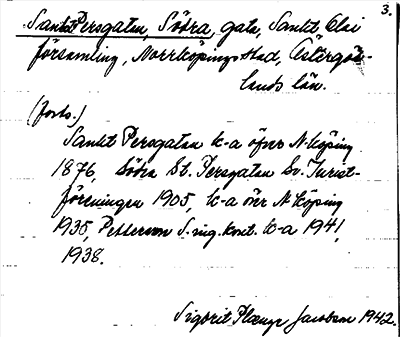 3.
Sankt Persgatan, Södra, gata, Sankt Olai
församling, Norrköpings stad, Östergöt-
lands län.
(forts.)
Sankt Persgatan k-a öfver N-köping
1876, Södra St. Persgatan Sv. Turist-
föreningen 1905, k-a över N köping
1935, Pettersson S. ing. kont. k-a 1941,
1938.
Sigbrit Jacobson 1942.